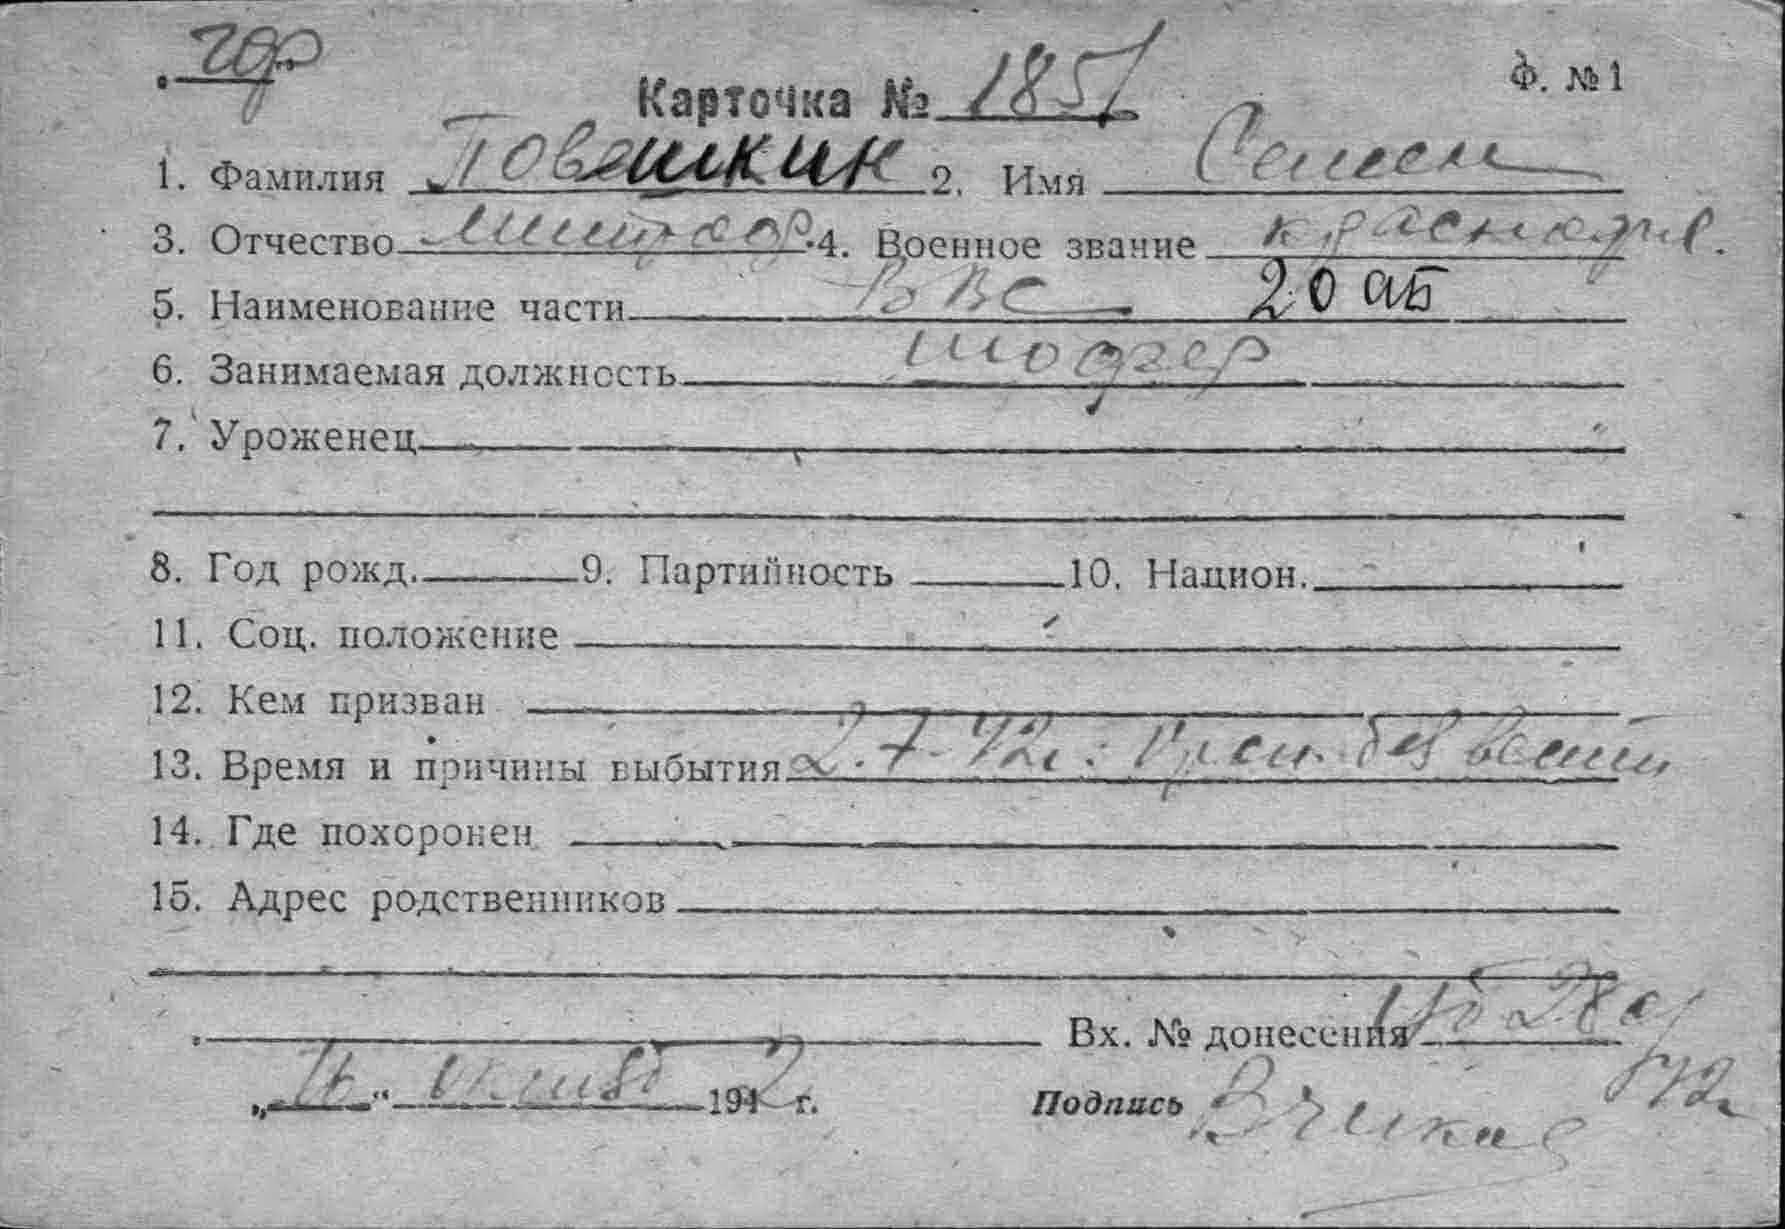 Ф. № 1
Карточка № 1851
1. Фамилия Повешкин 2. Имя Семен
3. Отчество Митроф. 4. Военное звание краснофл.
5. Наименование части ВВС 20 аБ
6. Занимаемая должность шофер
7. Уроженец
8. Год рожд. 9. Партийность 10. Национ.
11. Соц. положение
12. Кем призван
13. Время и причины выбытия 2.7.42г. проп. без вести
14. Где похоронен
15. Адрес родственников
Вх. № донесения
„16“ октяб 1942 г. Подпись